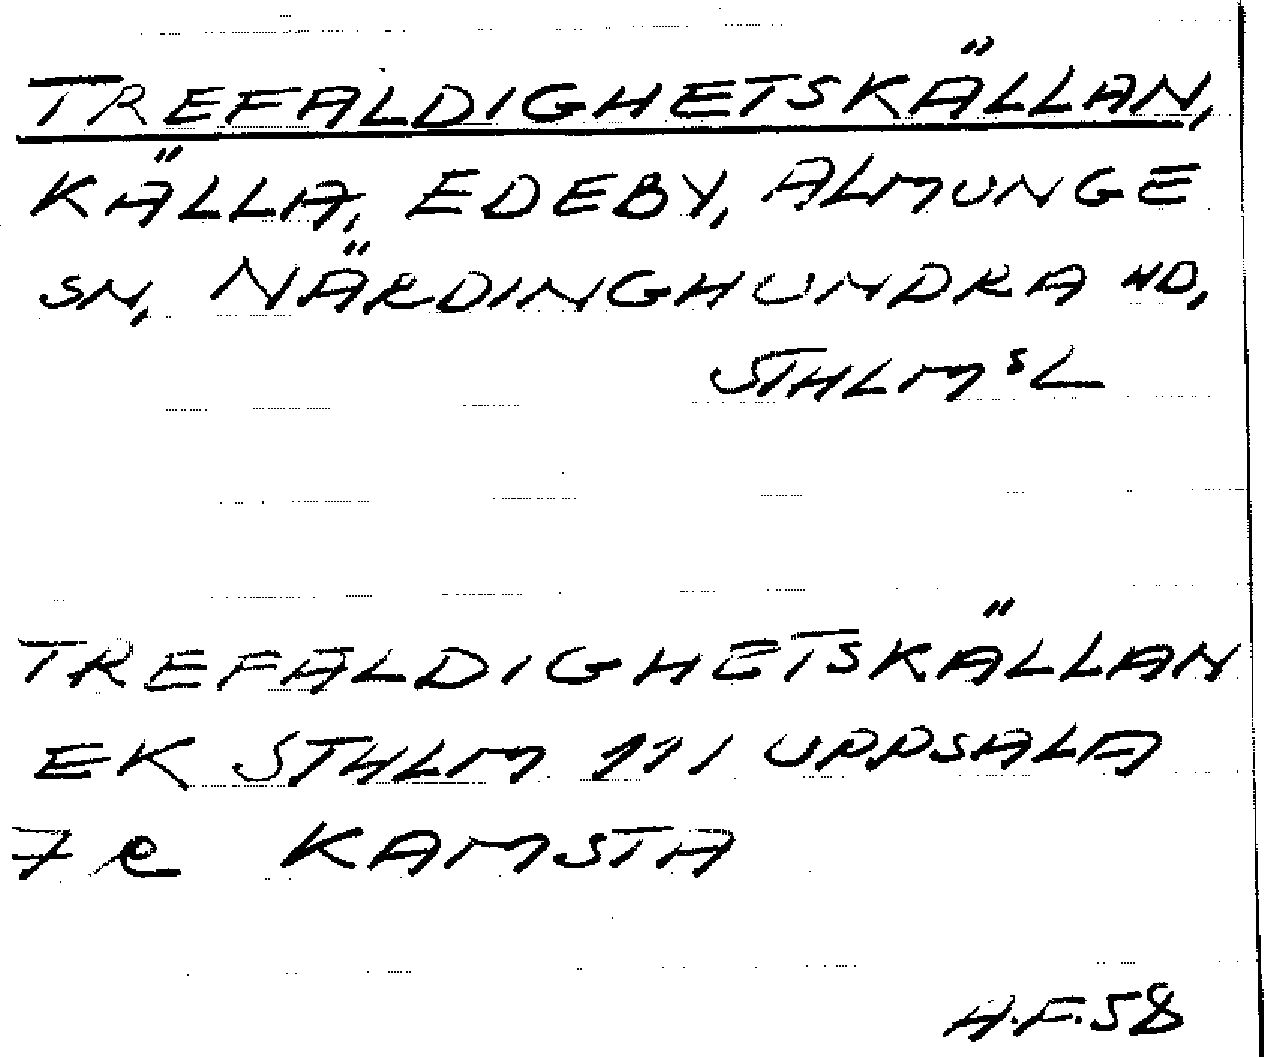 TREFALDIGHETSKÄLLAN,
KÄLLA, EDEBY, ALMUNGE
SN, NÄRDINGHUNDRA HD,
STHLMS L
TREFALDIGHETSKÄLLAN
EK STHLM 111 UPPSALA
7 e KAMSTA
H.F. 58